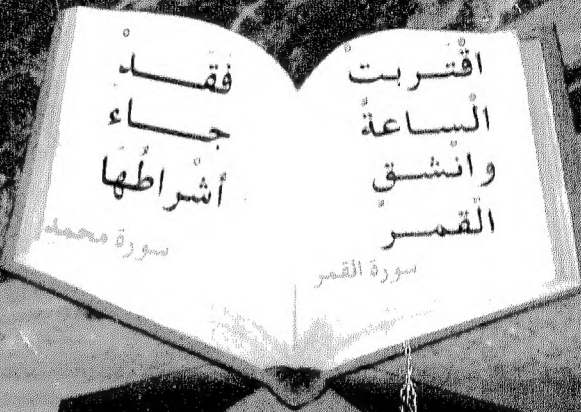 اقْتَربتْ
الْساعةُ
وانْشقَ
الْقمر
سورة القمر
فَقَدْ
جاء
أشْراطُهَا
سورة محمد